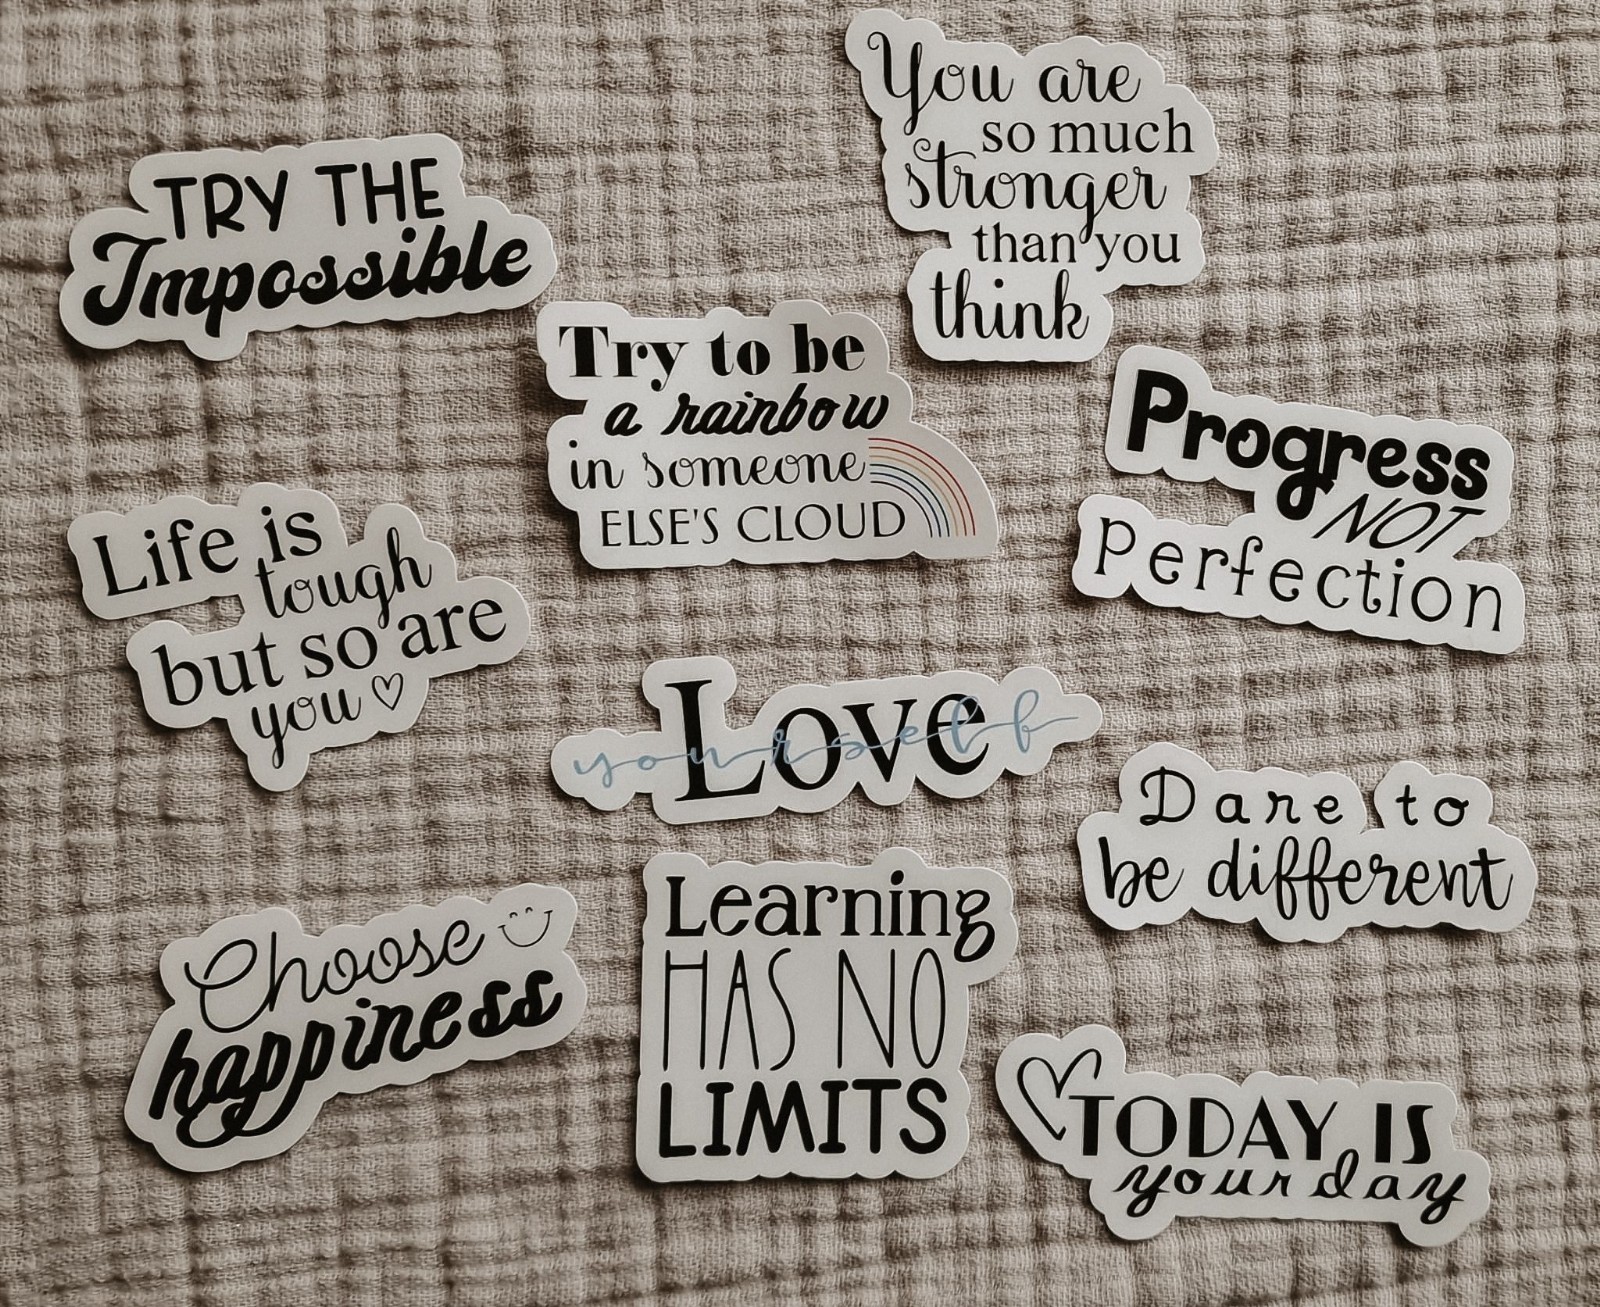 You are
so much
stronger
than you
think
TRY THE
Impossible
Try to be
a rainbow
in someone
ELSE'S CLOUD
Progress
NOT
Perfection
Life is
tough
but so are
you
Love
yourself
Dare to
be different
Choose
happiness
Learning
HAS NO
LIMITS
TODAY IS
your day